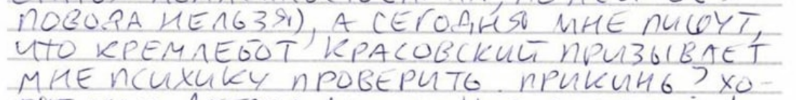 ПОВОДА НЕЛЬЗЯ), А СЕГОДНЯ МНЕ ПИШУТ,
ЧТО КРЕМЛЕБОТ КРАСОВСКИЙ ПРИЗЫВАЕТ
МНЕ ПСИХИКУ ПРОВЕРИТЬ. ПРИКИНЬ? ХО-